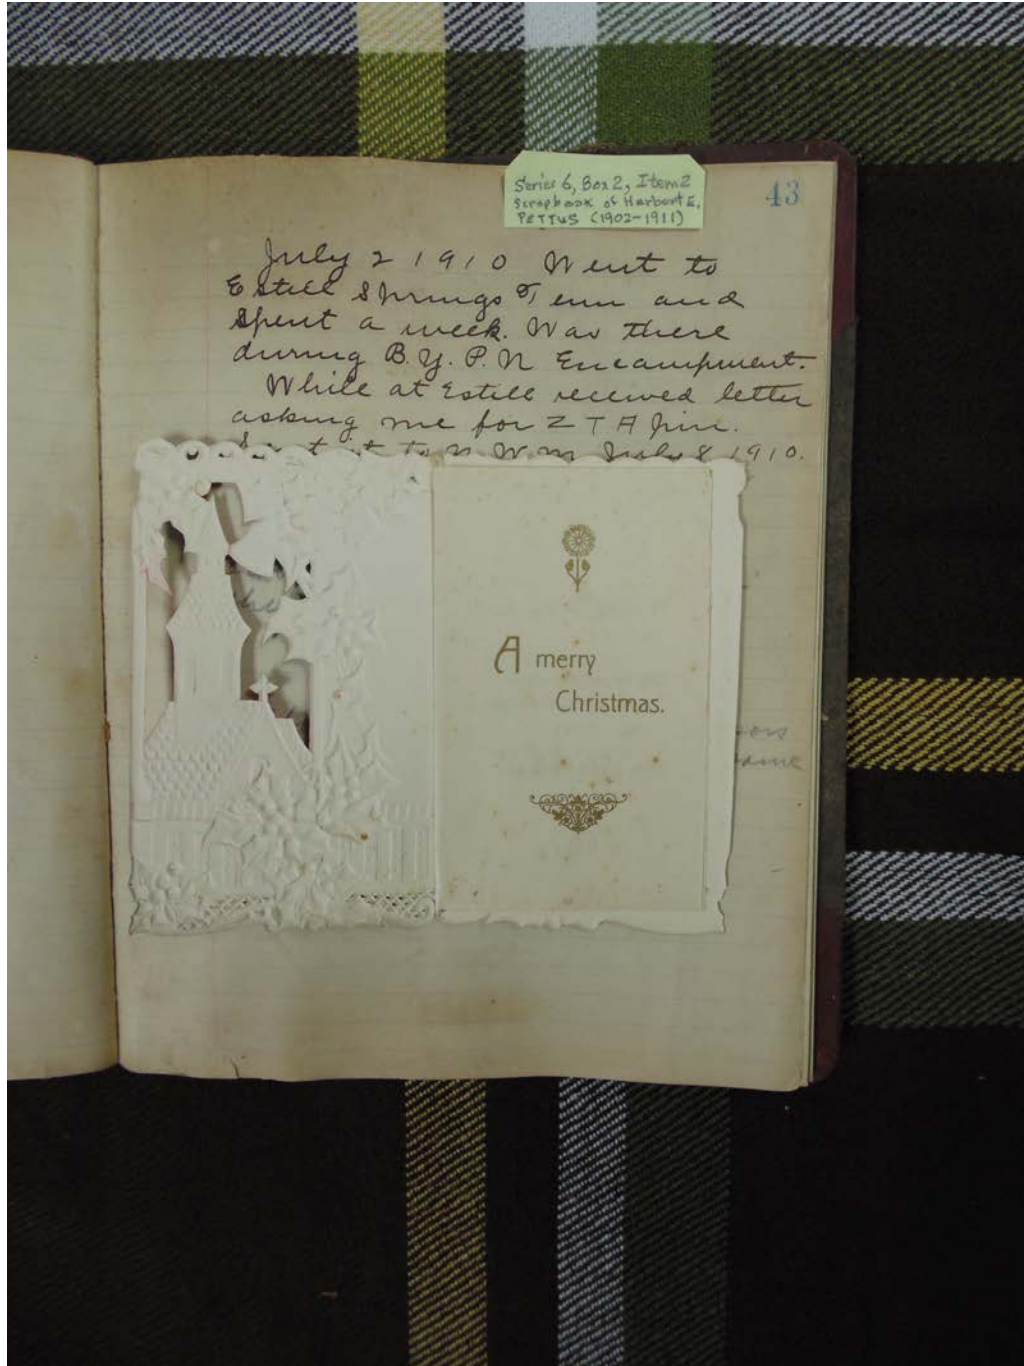 Series 6, Box 2, Item 2
Scrapbook of Herbert E.
PETTUS (1902-1911)
43
July 2 1910 Went to
Estill Springs Tenn and
Spent a week. Was there
during B.Y.P.U Encampment.
While at Estill received letter
asking me for Z T A pin.
Sent it to N. W. M July 8 1910.
A merry
Christmas.